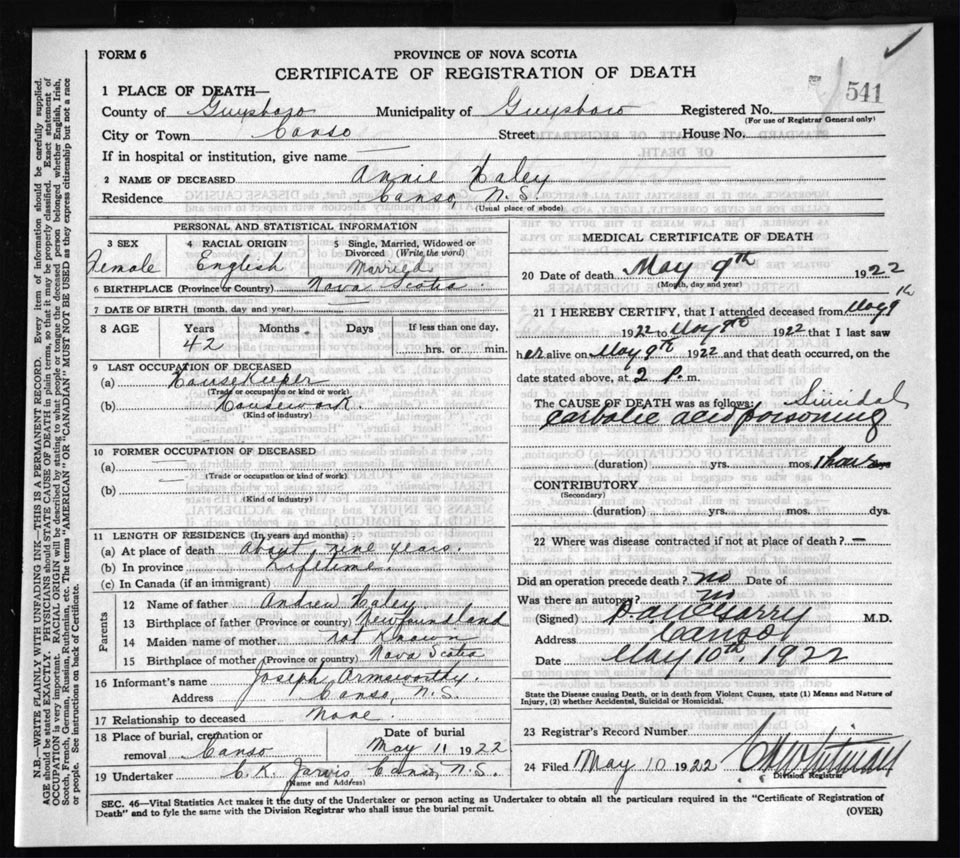 FORM 6
PROVINCE OF NOVA SCOTIA
CERTIFICATE OF REGISTRATION OF DEATH
541
1 PLACE OF DEATH—
County of Guysboro Municipality of Guysboro Registered No.
(For use of Registrar General only)
City or Town Canso Street House No.
If in hospital or institution, give name —
2 NAME OF DECEASED Annie Haley
Residence Canso, N.S.
(Usual place of abode)
PERSONAL AND STATISTICAL INFORMATION
3 SEX 4 RACIAL ORIGIN 5 Single, Married, Widowed or Divorced (Write the word)
Female English Married
6 BIRTHPLACE (Province or Country) Nova Scotia.
7 DATE OF BIRTH (month, day and year) —
8 AGE Years Months Days If less than one day,
42 hrs. or min.
9 LAST OCCUPATION OF DECEASED
(a) Housekeeper
(Trade or occupation or kind or work)
(b) Housework.
(Kind of industry)
10 FORMER OCCUPATION OF DECEASED
(a) —
(Trade or occupation or kind of work)
(b) —
(Kind of industry)
11 LENGTH OF RESIDENCE (In years and months)
(a) At place of death About nine years.
(b) In province Lifetime.
(c) In Canada (if an immigrant)
Parents
12 Name of father Andrew Haley.
13 Birthplace of father (Province or country) Newfoundland
14 Maiden name of mother Not Known
15 Birthplace of mother (Province or country) Nova Scotia
16 Informant's name Joseph Armsworthy.
Address Canso, N.S.
17 Relationship to deceased None.
18 Place of burial, cremation or removal Canso Date of burial May 11 1922
19 Undertaker C.K. Jarvis Canso, N.S.
(Name and Address)
MEDICAL CERTIFICATE OF DEATH
20 Date of death May 9th 1922
(Month, day and year)
21 I HEREBY CERTIFY, that I attended deceased from May 9th
1922 to May 9th 1922 that I last saw
her alive on May 9th 1922 and that death occurred, on the
date stated above, at 2 P. m.
The CAUSE OF DEATH was as follows: Suicidal
Carbolic acid poisoning
(duration) yrs. mos. 1 hour
CONTRIBUTORY
(Secondary)
(duration) yrs. mos. dys.
22 Where was disease contracted if not at place of death? —
Did an operation precede death? no Date of
Was there an autopsy? no
(Signed) M.D.
Address Canso
Date May 10th, 1922
State the Disease causing Death, or in death from Violent Causes, state (1) Means and Nature of
Injury, (2) whether Accidental, Suicidal or Homicidal.
23 Registrar's Record Number
24 Filed May 10 1922
Division Registrar
SEC. 46—Vital Statistics Act makes it the duty of the Undertaker or person acting as Undertaker to obtain all the particulars required in the "Certificate of Registration of
Death" and to fyle the same with the Division Registrar who shall issue the burial permit. (OVER)
N.B.—WRITE PLAINLY WITH UNFADING INK—THIS IS A PERMANENT RECORD. Every item of information should be carefully supplied.
AGE should be stated EXACTLY. PHYSICIANS should STATE CAUSE OF DEATH in plain terms, so that it may be properly classified. Exact statement of
OCCUPATION is very important. RACIAL ORIGIN will be described by stating to what people or tongue the deceased person belonged whether English, Irish,
Scotch, French, German, Russian, Ruthenian, etc. The terms "AMERICAN" OR "CANADIAN" MUST NOT BE USED as they express citizenship but not a race
or people. See instructions on back of Certificate.